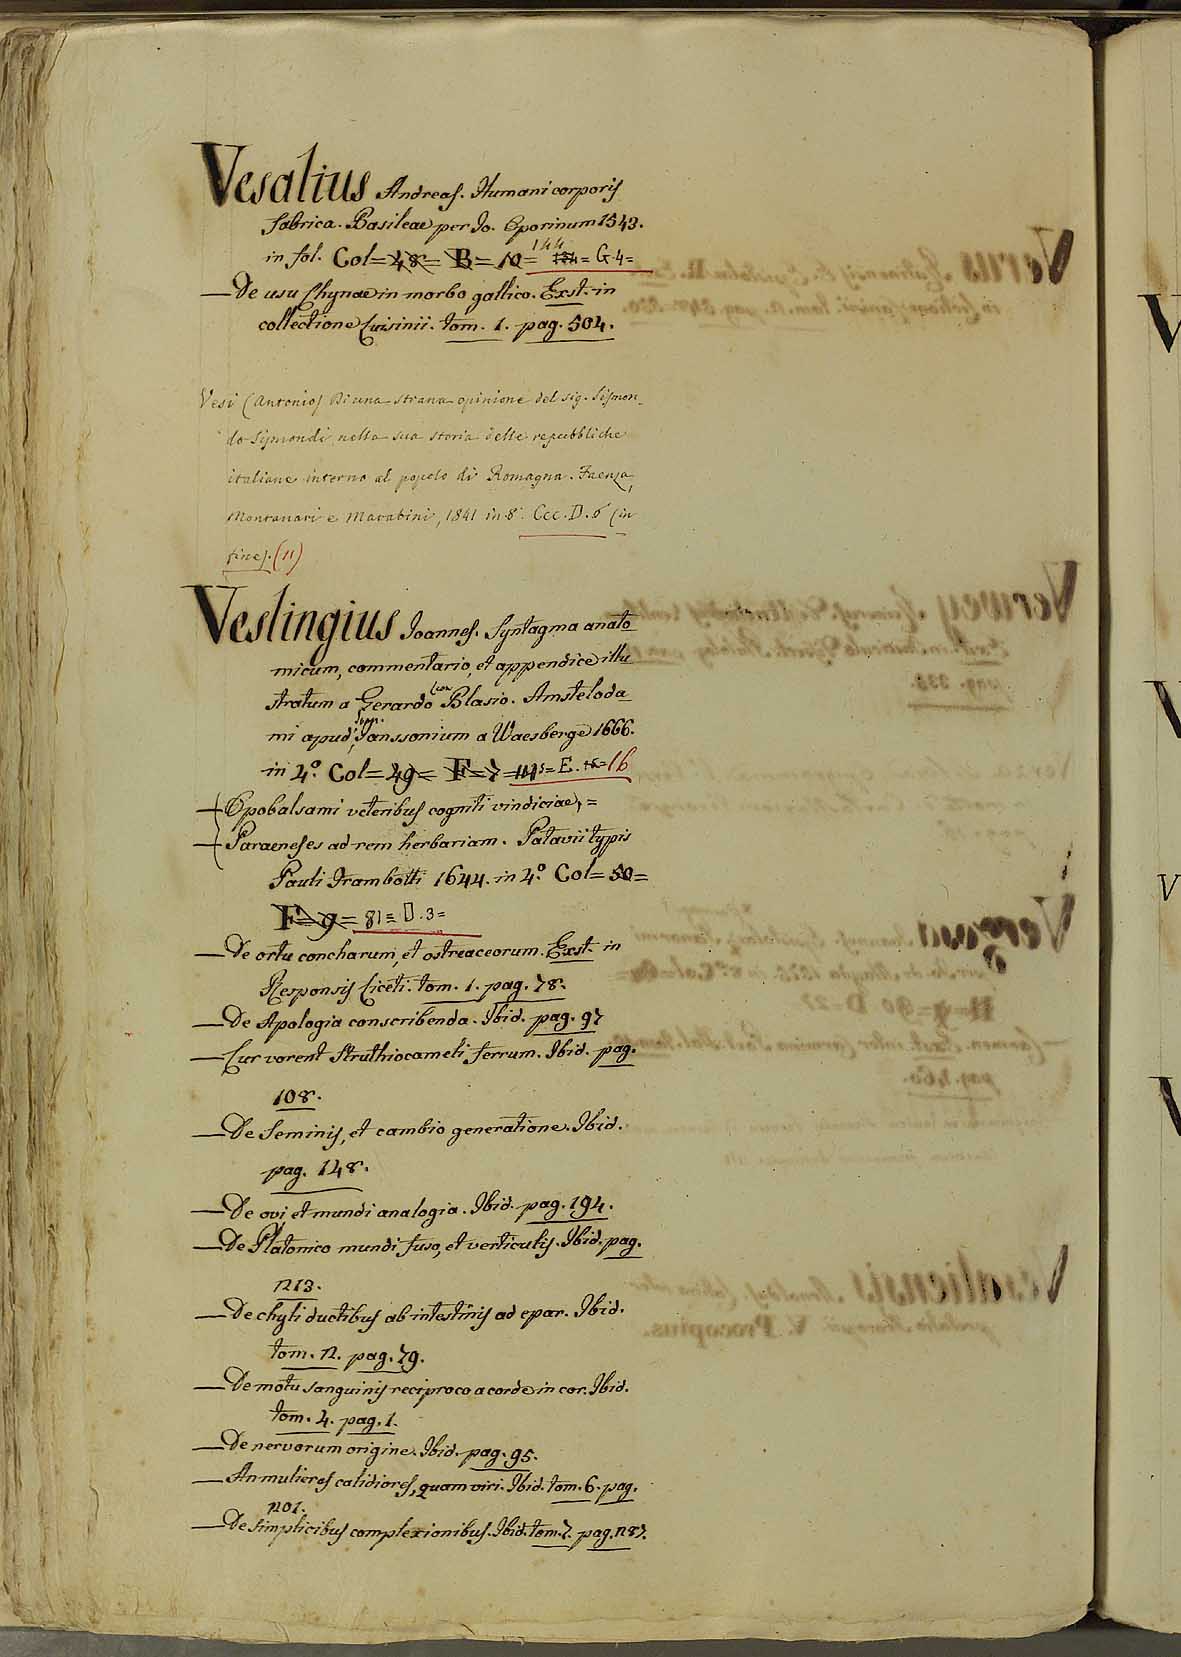 Vesalius Andreas. Humani corporis
fabrica. Basileae per Jo. Oporinum 1543.
in fol. Col=48= B=10= 144 = G.4=
—De usu Chynae in morbo gallico. Exst. in
collectione Luisinii. tom. 1. pag. 504.
Vesi (Antonio) Di una strana opinione del sig. Sismon-
do Symondi nella sua storia delle repubbliche
italiane intorno al popolo di Romagna. Faenza,
Montanari e Marabini, 1841 in 8°. Ccc. D. 6 (in
fine). (11)
Veslingius Joannes. Syntagma anato
micum, commentario, et appendice illu
stratum a Gerardo Leon Blasio. Amsteloda
mi apud Janssonium a Waesberge 1666.
in 4.° Col=49= F=7= = E. 16
—Opobalsami veteribus cogniti vindiciae, =
—Paraeneses ad rem herbariam. Patavii typis
Pauli Frambotti 1644. in 4.° Col=50=
F=9= 81= D.3=
—De ortu concharum, et ostreaceorum. Exst. in
Responsis Liceti. tom. 1. pag. 78.
—De Apologia conscribenda. Ibid. pag. 97
—Cur vorent Struthiocameli ferrum. Ibid. pag.
108.
—De Seminis, et cambio generatione. Ibid.
pag. 148.
—De ovi et mundi analogia. Ibid. pag. 194.
—De Platonico mundi fuso, et verticulis. Ibid. pag.
213.
—De chyli ductibus ab intestinis ad epar. Ibid.
tom. 2. pag. 79.
—De motu sanguinis reciproco a corde in cor. Ibid.
tom. 4. pag. 1.
—De nervorum origine. Ibid. pag. 95.
—An mulieres calidiores, quam viri. Ibid. tom. 6. pag.
201.
—De simplicibus complexionibus. Ibid. tom. 7. pag. 287.